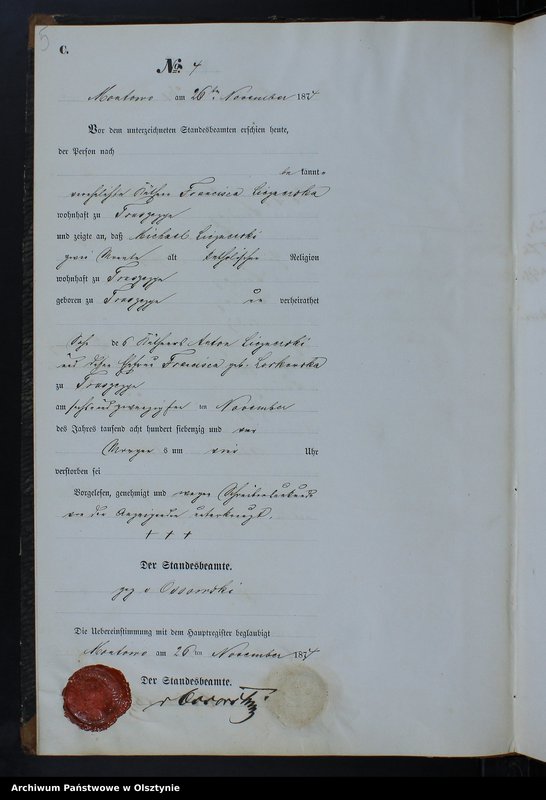 5
C.
№ 4
Montowo am 26ten November 1874
Vor dem unterzeichneten Standesbeamten erschien heute,
der Person nach
be kannt=
verehelichte Käthner Francisca
wohnhaft zu
und zeigte an, daß Michael
zwei Monate alt katholischer Religion
wohnhaft zu
geboren zu un verheirathet
Sohn des Käthners Anton
und dessen Ehefrau Francisca geb.
zu
am sechsundzwanzigsten ten November
des Jahres tausend acht hundert siebenzig und vier
Morgens um vier Uhr
verstorben sei
Vorgelesen, genehmigt und wegen Schreibensunkunde
von der Anzeigenden unterkreuzt.
+ + +
Der Standesbeamte.
gez v Ossowski
Die Uebereinstimmung mit dem Hauptregister beglaubigt
Montowo am 26 ten November 1874
Der Standesbeamte.
v Ossowski
Archiwum Państwowe w Olsztynie